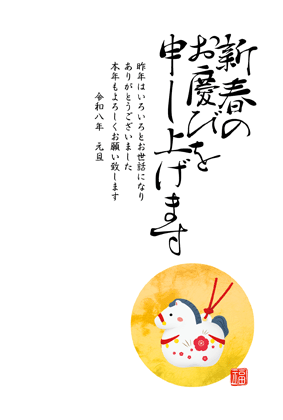 新春の
お慶びを
申し上げます
昨年はいろいろとお世話になり
ありがとうございました
本年もよろしくお願い致します
令和八年　元旦
福